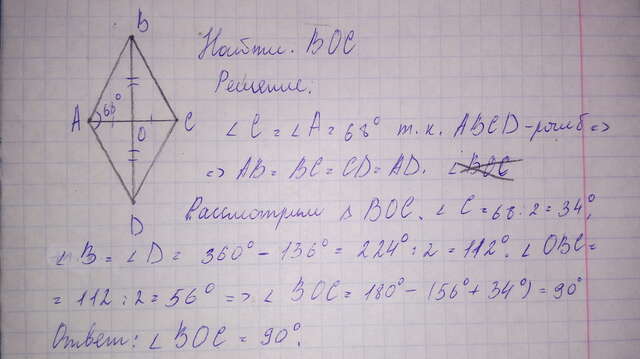 B
Найти. BOC
Решение.
68°
A
O
C
∠C = ∠A = 68° т.к. ABCD - ромб =>
=> AB = BC = CD = AD.
D
Рассмотрим Δ BOC. ∠C = 68 : 2 = 34°,
∠B = ∠D = 360° - 136° = 224° : 2 = 112°. ∠OBC =
= 112 : 2 = 56° => ∠ BOC = 180° - (56° + 34°) = 90°
Ответ: ∠ BOC = 90°.